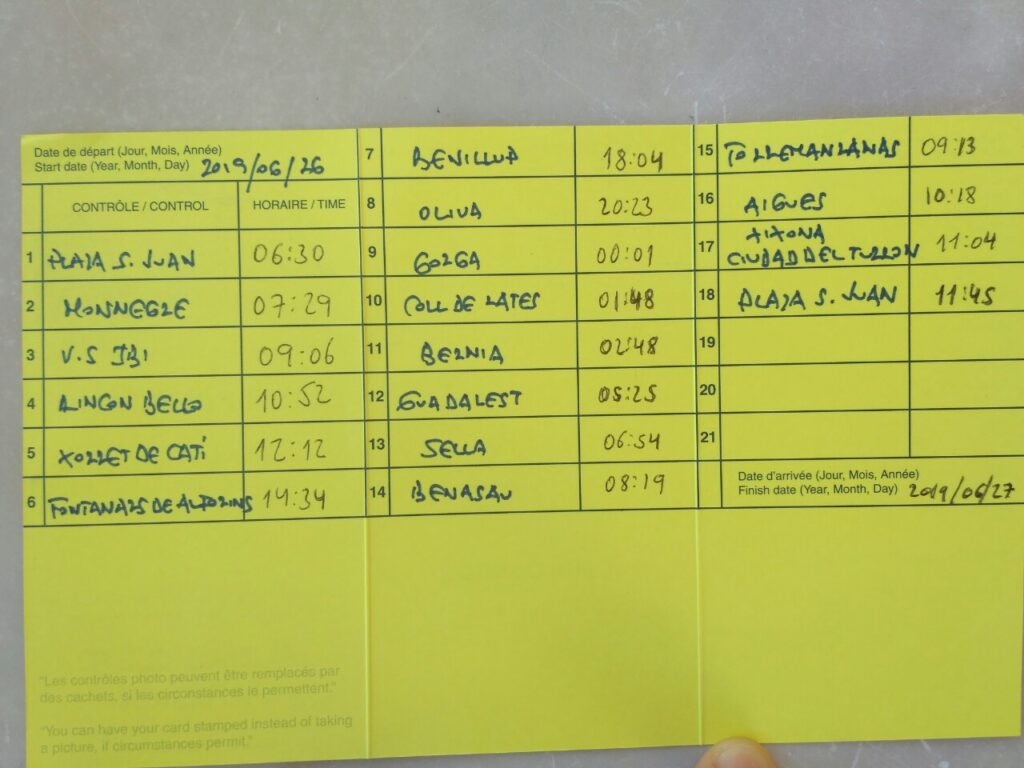 Date de départ (Jour, Mois, Année)
Start date (Year, Month, Day) 2019/06/26
CONTRÔLE / CONTROL HORAIRE / TIME
1 PLAJA S. JUAN 06:30
2 MONNEGRE 07:29
3 V.S IBI 09:06
4 RINCON BELLO 10:52
5 XORRET DE CATÍ 12:12
6 FONTANARS DE ALFORINS 14:34
7 BENILLUP 18:04
8 OLIVA 20:23
9 GORGA 00:01
10 COLL DE RATES 01:48
11 BERNIA 02:48
12 GUADALEST 05:25
13 SELLA 06:54
14 BENASAU 08:19
15 TORREMANZANAS 09:13
16 AIGUES 10:18
17 XIXONA
CIUDAD DEL TURRON 11:04
18 PLAJA S. JUAN 11:45
19
20
21
Date d'arrivée (Jour, Mois, Année)
Finish date (Year, Month, Day) 2019/06/27
"Les contrôles photo peuvent être remplacés par
des cachets, si les circonstances le permettent."
"You can have your card stamped instead of taking
a picture, if circumstances permit."